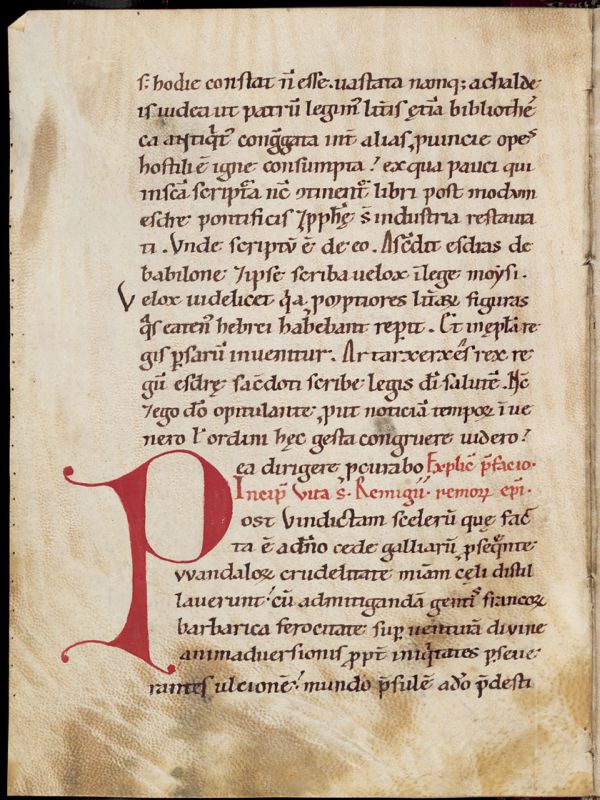 s; hodie constat n̄ esse. uastata namq; a chalde
is iudea ut patrū legim᷒ lītis ētiā bibliothē
ca antiq̇t᷒ congͣgata int̄ alias ꝓuincie opes
hostili ē igne consumpta! ex qua pauci qui
in scā scriptͣa nc̄ ↄtinent᷒ libri post modum
esdre pontificis ⁊ ꝓphę s̄ industria restaura
ti. Vnde scriptū ē de eo. Ascdit esdras de
babilone ⁊ ipse scriba uelox ī lege moysi.
Velox uidelicet q̇a ꝓmptiores lītaꝝ figuras
q̇s eaten᷒ hebrei habebant repp̄it. Et in ep̄la re
gis ꝑsarū inuenitur. Artarxerxes rex re
gū esdrę sacdoti scribe legis dī salutē. Hc̄
⁊ ego dō opitulante, ꝓut noticiā tempoꝝ ī ue
nero ł ordini hęc gesta congruere uidero!
ea dirigere ꝓcurabo Explic̄ p̄facio.
Incip̄ Vita s̄. Remigii. remoꝝ ep̄i.
Post Vindictam scelerū quę fac
ta ē a dn̄o cede galliarū ꝑseq̇nte
VVandaloꝝ crudelitate miām cęli distil
lauerunt! cū ad mitigandā genti᷒ francoꝝ
barbarica ferocitate suꝑ uenturā diuine
animaduersionis ꝓpt̄ iniq̇tates ꝑseue
rantes ulcionē! mundo p̄sulē a dō p̄desti